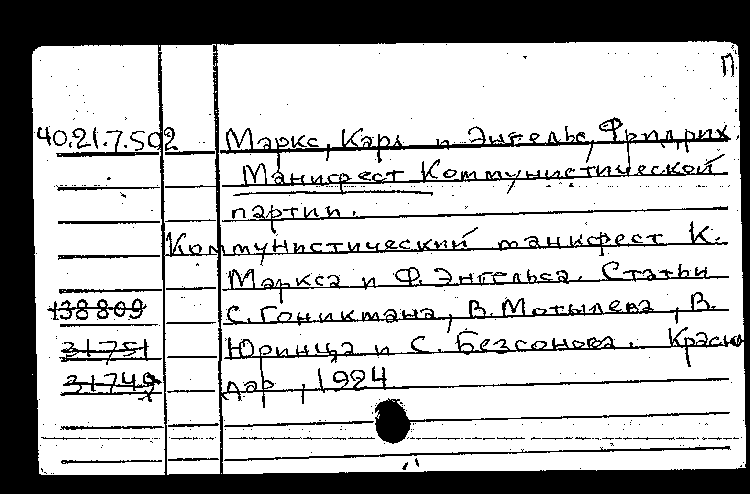 П
40.21.7.502 Маркс, Карл и Энгельс, Фридрих.
Манифест Коммунистической
партии.
Коммунистический манифест К.
Маркса и Ф. Энгельса. Статьи
138809 С. Гоникмана, В. Мотылева, В.
31751 Юринца и С. Безсонова. Красно
31749 дар, 1924